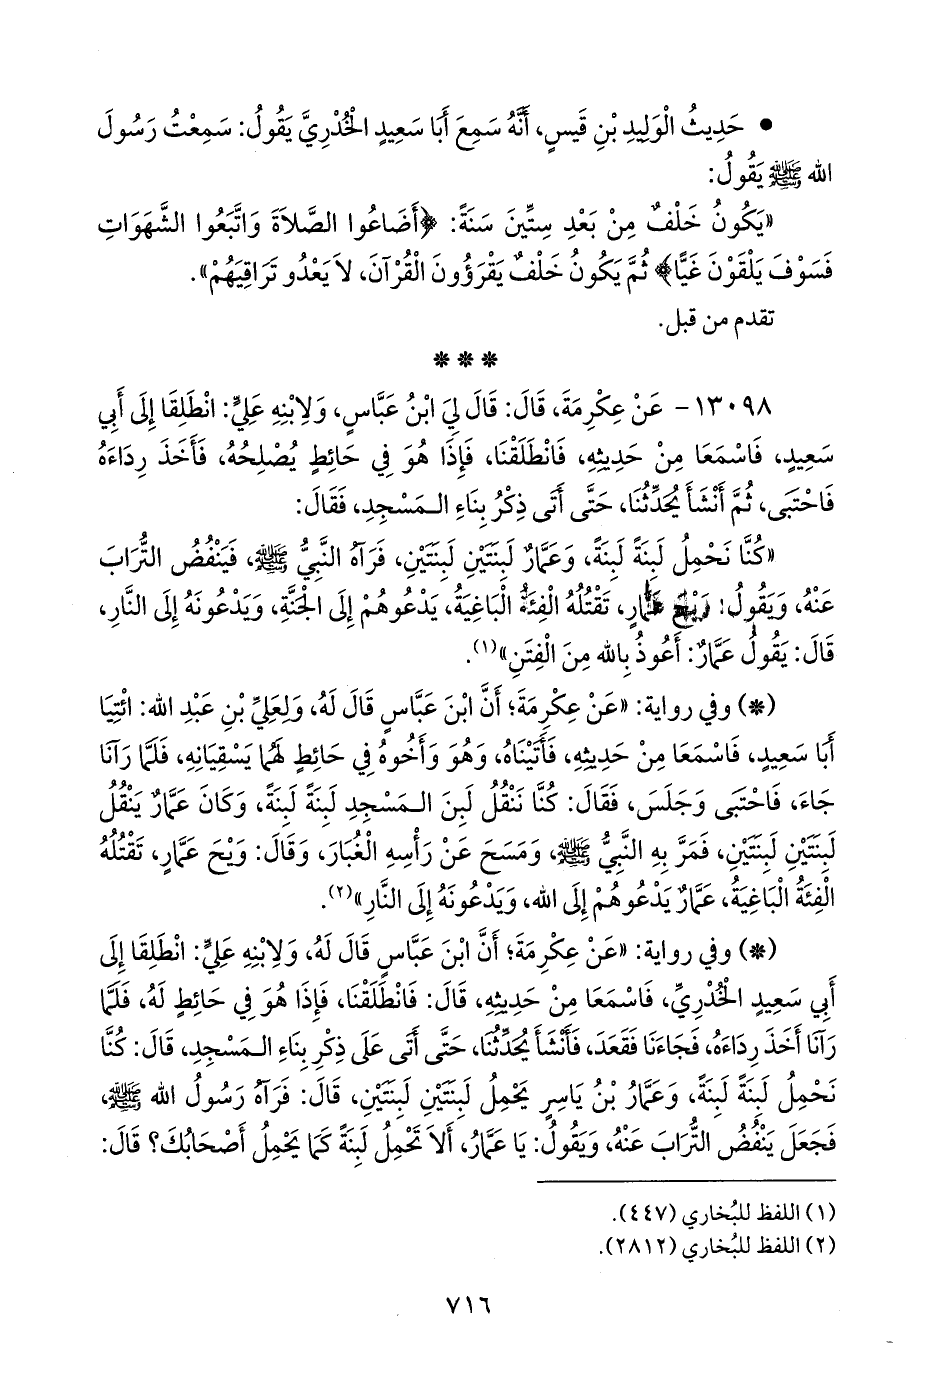 • حَدِيثُ الْوَلِيدِ بْنِ قَيسٍ، أَنَّهُ سَمِعَ أَبَا سَعِيدٍ الْخُدْرِيَّ يَقُولُ: سَمِعْتُ رَسُولَ
الله ﷺ يَقُولُ:
«يَكُونُ خَلْفٌ مِنْ بَعْدِ سِتِّينَ سَنَةً: ﴿أَضَاعُوا الصَّلاَةَ وَاتَّبَعُوا الشَّهَوَاتِ
فَسَوْفَ يَلْقَوْنَ غَيًّا﴾ ثُمَّ يَكُونُ خَلْفٌ يَقْرَؤُونَ الْقُرْآنَ، لاَ يَعْدُو تَرَاقِيَهُمْ».
تقدم من قبل.
* * *
١٣٠٩٨- عَنْ عِكْرِمَةَ، قَالَ: قَالَ لِيَ ابْنُ عَبَّاسٍ، وَلِابْنِهِ عَلِيٍّ: انْطَلِقَا إِلَى أَبِي
سَعِيدٍ، فَاسْمَعَا مِنْ حَدِيثِهِ، فَانْطَلَقْنَا، فَإِذَا هُوَ فِي حَائِطٍ يُصْلِحُهُ، فَأَخَذَ رِدَاءَهُ
فَاحْتَبَى، ثُمَّ أَنْشَأَ يُحَدِّثُنَا، حَتَّى أَتَى ذِكْرُ بِنَاءِ الـمَسْجِدِ، فَقَالَ:
«كُنَّا نَحْمِلُ لَبِنَةً لَبِنَةً، وَعَمَّارٌ لَبِنَتَيْنِ لَبِنَتَيْنِ، فَرَآهُ النَّبِيُّ ﷺ، فَيَنْفُضُ التُّرَابَ
عَنْهُ، وَيَقُولُ: وَيْحَ عَمَّارٍ، تَقْتُلُهُ الْفِئَةُ الْبَاغِيَةُ، يَدْعُوهُمْ إِلَى الْجَنَّةِ، وَيَدْعُونَهُ إِلَى النَّارِ،
قَالَ: يَقُولُ عَمَّارٌ: أَعُوذُ بِالله مِنَ الْفِتَنِ»(١).
(*) وفي رواية: «عَنْ عِكْرِمَةَ؛ أَنَّ ابْنَ عَبَّاسٍ قَالَ لَهُ، وَلِعَلِيِّ بْنِ عَبْدِ الله: ائْتِيَا
أَبَا سَعِيدٍ، فَاسْمَعَا مِنْ حَدِيثِهِ، فَأَتَيْنَاهُ، وَهُوَ وَأَخُوهُ فِي حَائِطٍ لَهُمَا يَسْقِيَانِهِ، فَلَمَّا رَآنَا
جَاءَ، فَاحْتَبَى وَجَلَسَ، فَقَالَ: كُنَّا نَنْقُلُ لَبِنَ الـمَسْجِدِ لَبِنَةً لَبِنَةً، وَكَانَ عَمَّارٌ يَنْقُلُ
لَبِنَتَيْنِ لَبِنَتَيْنِ، فَمَرَّ بِهِ النَّبِيُّ ﷺ، وَمَسَحَ عَنْ رَأْسِهِ الْغُبَارَ، وَقَالَ: وَيْحَ عَمَّارٍ، تَقْتُلُهُ
الْفِئَةُ الْبَاغِيَةُ، عَمَّارٌ يَدْعُوهُمْ إِلَى الله، وَيَدْعُونَهُ إِلَى النَّارِ»(٢).
(*) وفي رواية: «عَنْ عِكْرِمَةَ؛ أَنَّ ابْنَ عَبَّاسٍ قَالَ لَهُ، وَلِابْنِهِ عَلِيٍّ: انْطَلِقَا إِلَى
أَبِي سَعِيدٍ الْخُدْرِيِّ، فَاسْمَعَا مِنْ حَدِيثِهِ، قَالَ: فَانْطَلَقْنَا، فَإِذَا هُوَ فِي حَائِطٍ لَهُ، فَلَمَّا
رَآنَا أَخَذَ رِدَاءَهُ، فَجَاءَنَا فَقَعَدَ، فَأَنْشَأَ يُحَدِّثُنَا، حَتَّى أَتَى عَلَى ذِكْرِ بِنَاءِ الـمَسْجِدِ، قَالَ: كُنَّا
نَحْمِلُ لَبِنَةً لَبِنَةً، وَعَمَّارُ بْنُ يَاسِرٍ يَحْمِلُ لَبِنَتَيْنِ لَبِنَتَيْنِ، قَالَ: فَرَآهُ رَسُولُ الله ﷺ،
فَجَعَلَ يَنْفُضُ التُّرَابَ عَنْهُ، وَيَقُولُ: يَا عَمَّارُ، أَلاَ تَحْمِلُ لَبِنَةً كَمَا يَحْمِلُ أَصْحَابُكَ؟ قَالَ:
(١) اللفظ للبُخاري (٤٤٧).
(٢) اللفظ للبُخاري (٢٨١٢).
٧١٦